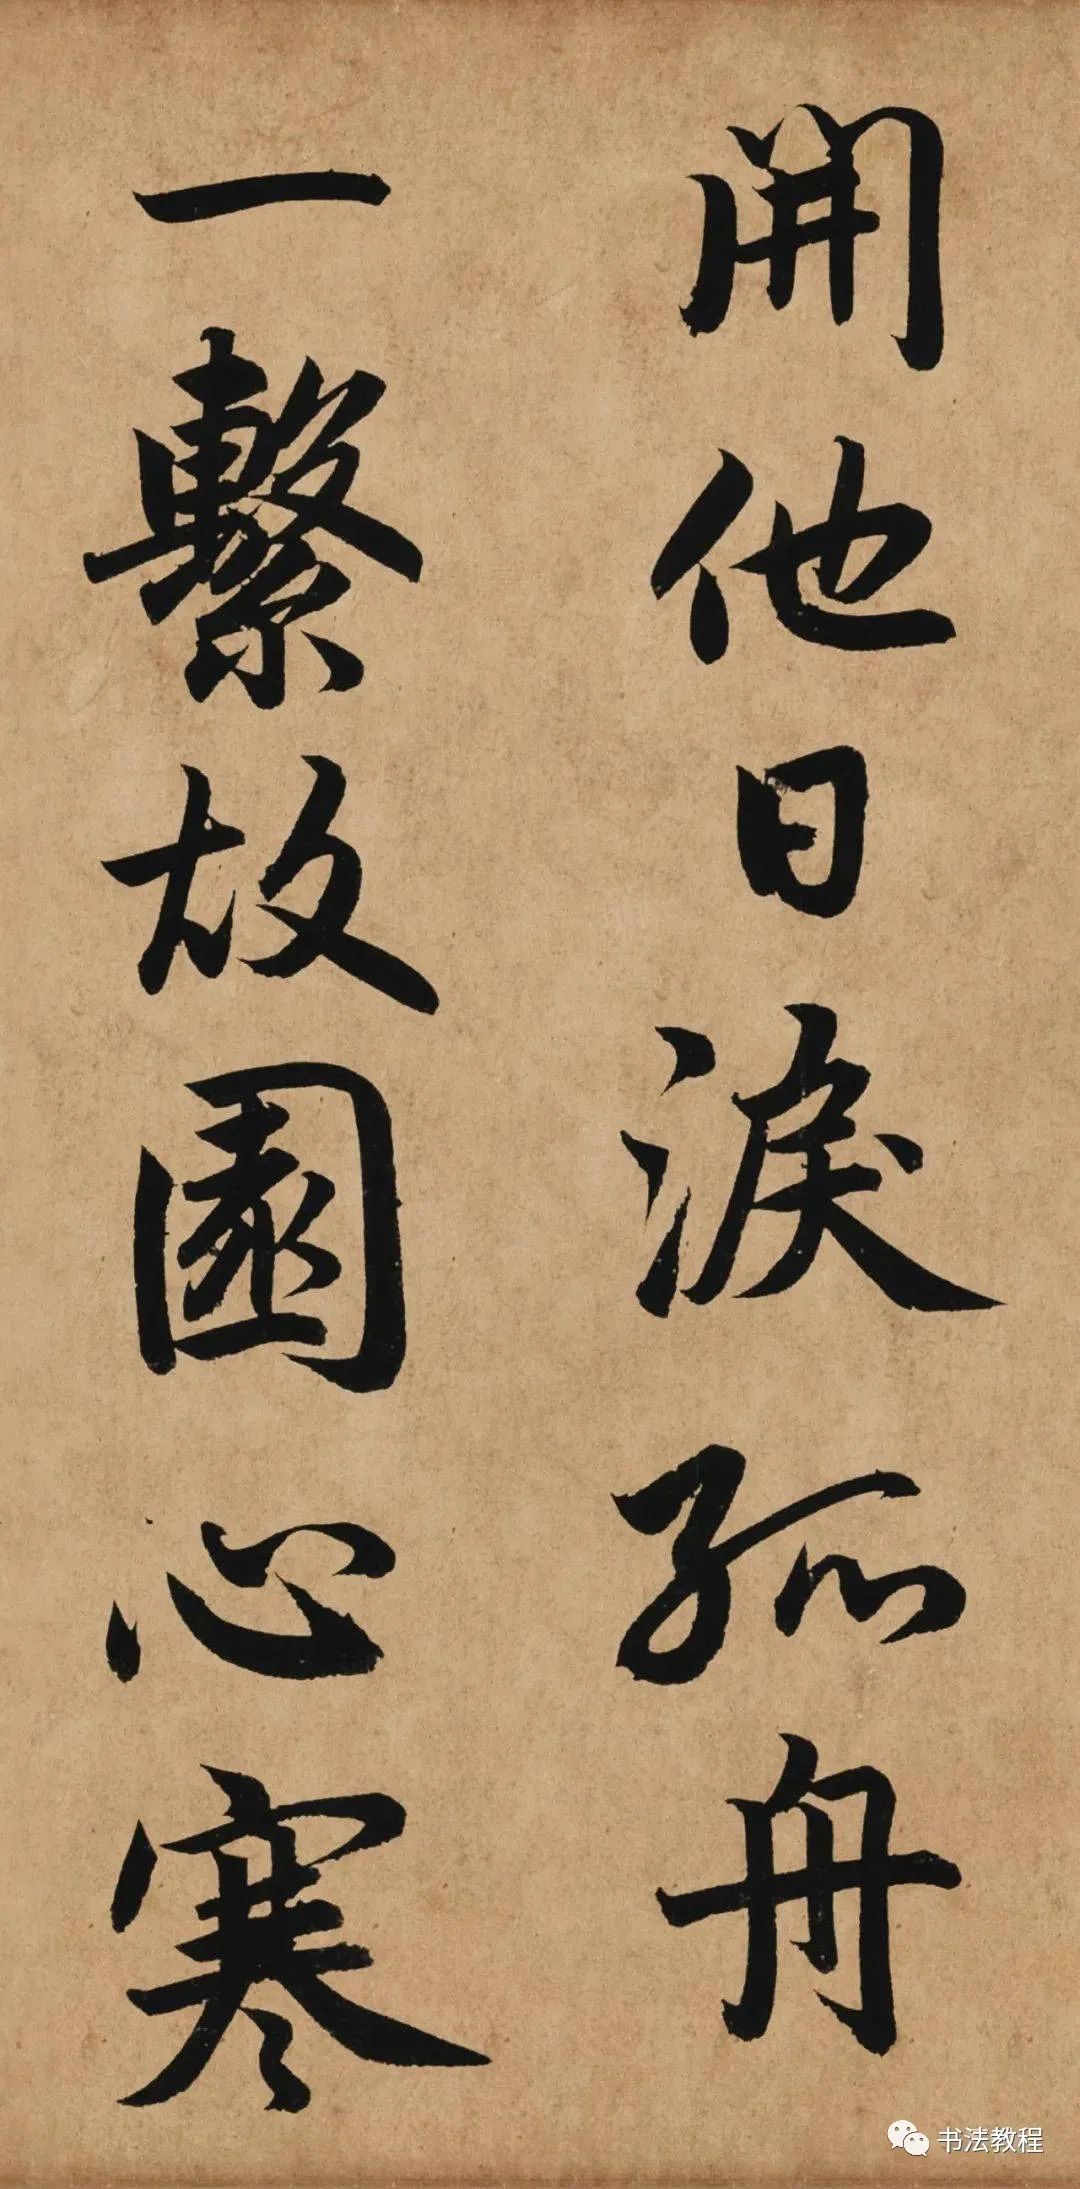 開他日淚孤舟
一繫故園心寒
书法教程